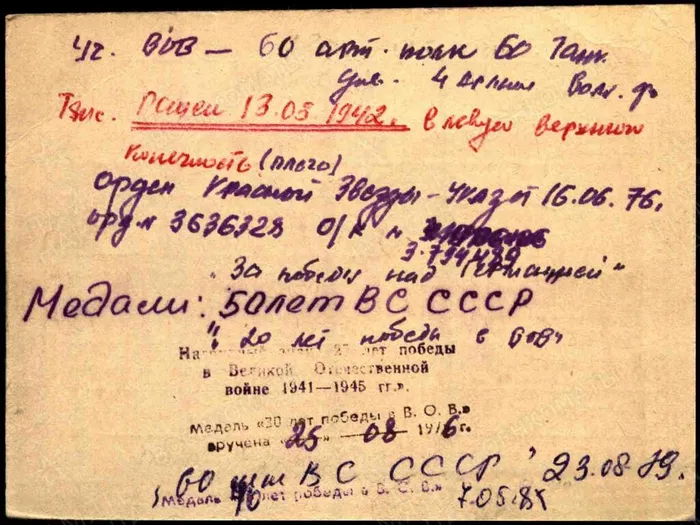 Уч. ВОВ — 60 арт. полк 60 Танк.
див. 4 армии Волх. фр
Тяж. Ранен 13.05.1942г. в левую верхнюю
конечность (плечо)
орден Красной Звезды - Указ от 16.06.76г
орд № 3636328 о/к н
3-794489
"За победу над Германией"
Медали: 50 лет ВС СССР
" 20 лет победы в ВОВ"
Нагрудный знак 25 лет победы
в Великой Отечественной
войне 1941—1945 гг.».
Медаль «30 лет победы в В. О. В.»
вручена «25» — 08 1976 г.
60 лет ВС СССР 23.08.79.
Медаль 40 лет победы в В. О. В.» 7.05.85